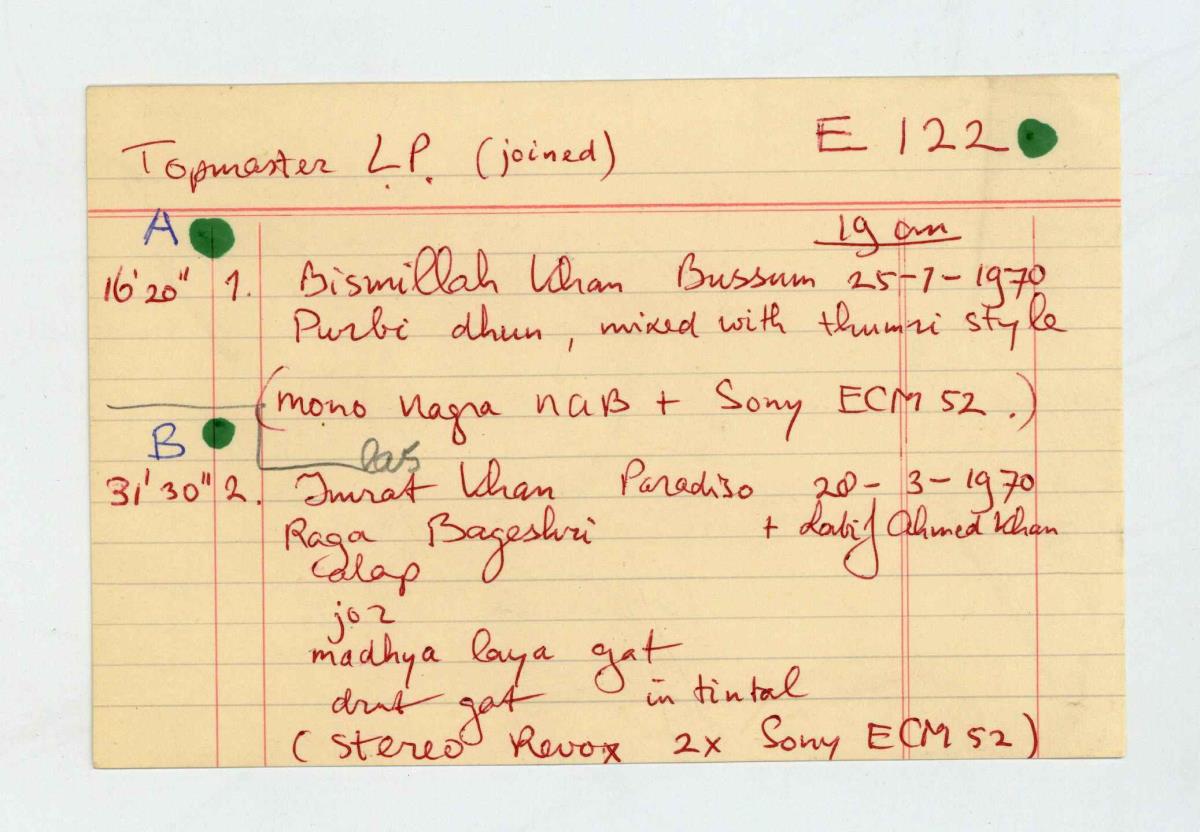 Topmaster L.P. (joined) E 122
A
19 cm
16'20" 1. Bismillah Khan Bussum 25-1-1970
Purbi dhun, mixed with thumri style
(mono Nagra NAB + Sony ECM 52.)
B
las
31'30" 2. Imrat Khan Paradiso 28-3-1970
Raga Bageshri + Latif Ahmed Khan
alap
jor
madhya laya gat
drut gat in tintal
(stereo Revox 2x Sony ECM 52)